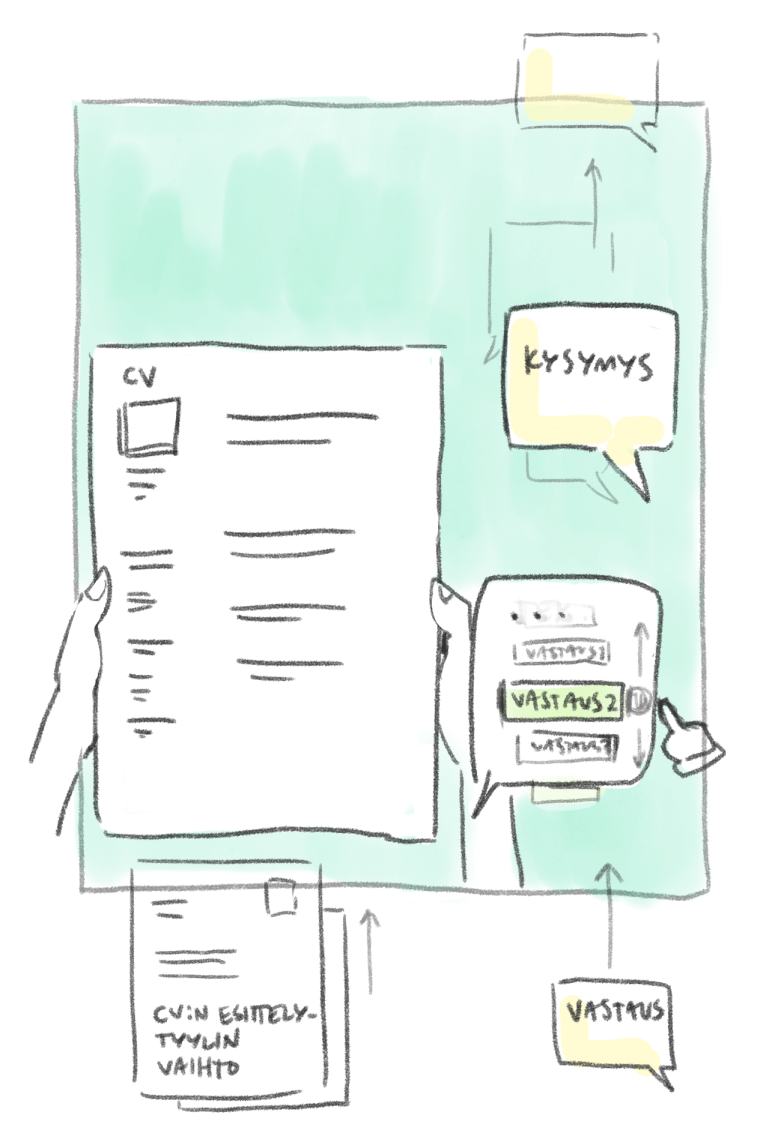 CV
KYSYMYS
VASTAUS1
VASTAUS2
VASTAUS3
CV:N ESITTELY-
TYYLIN
VAIHTO
VASTAUS